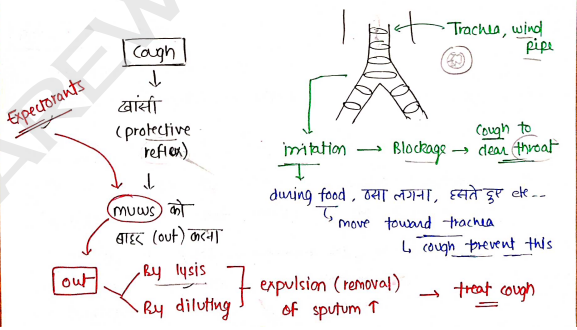 Cough
Trachea, wind
pipe
Expectorants
खांसी
(protective
reflex)
irritation → Blockage → Cough to
clear throat
mucus को
बाहर (out) करना
during food, ठसा लगना, हसते हुए etc...
move toward trachea
cough prevent this
out
By lysis
By diluting
expulsion (removal)
of sputum ↑
→ treat cough